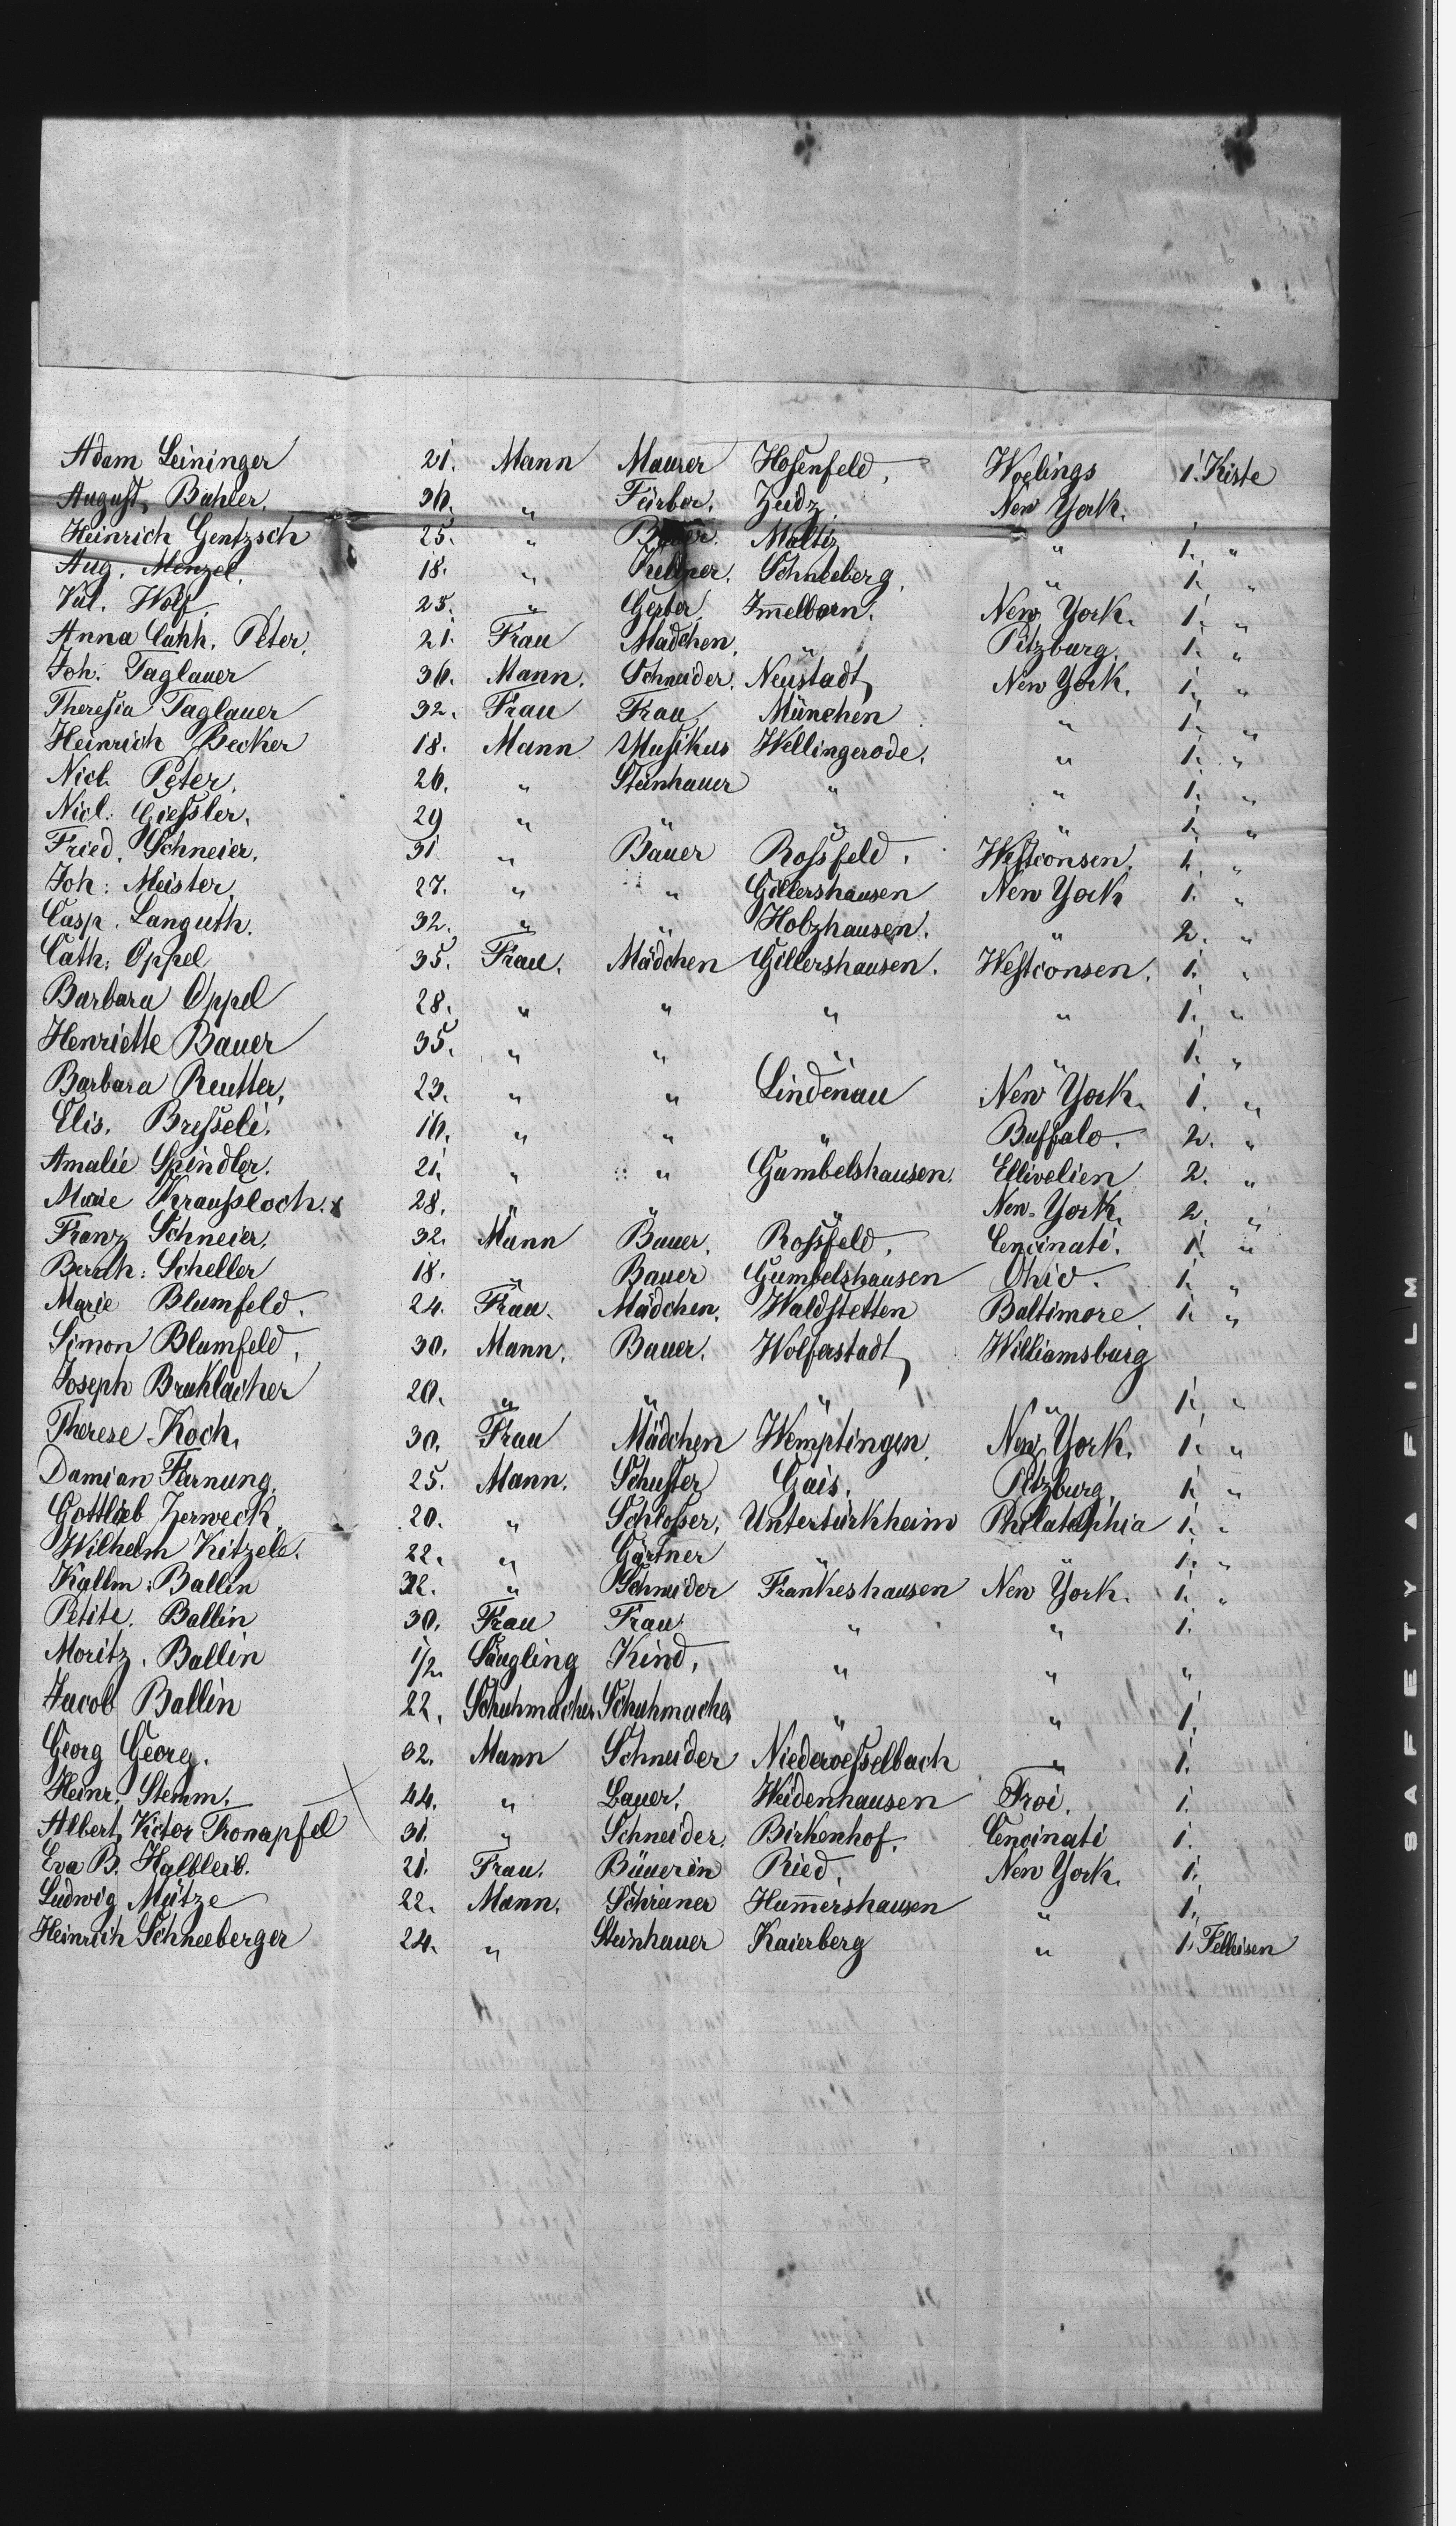 Adam Leininger 21. Mann Maurer Hosenfeld. Woelings 1. Kiste
August, Bühler. 36. " Färber. Zeidz. New York.
Heinrich Gentzsch 25. " Maltiz " 1. "
Aug. Menzel. 18. " Kellner. Schneeberg. " 1. "
Val. Wolf. 25. " Gerber Imelborn. New York. 1. "
Anna Cath. Peter. 21. Frau Mädchen. " Pitzburg. 1. "
Joh. Taglauer 36. Mann. Schneider. Neustadt, New York. 1. "
Theresia Taglauer 32. Frau Frau München " 1. "
Heinrich Becker 18. Mann Musikus Wellingerode. " 1. "
Nicl. Peter. 26. " Steinhauer " " 1. "
Nicl. Giessler. 29 " " " " 1. "
Fried. Schneier. 31 " Bauer Rossfeld. Westconsen. 1. "
Joh: Meister 27. " " Gillershausen New York 1. "
Casp. Languth. 32. " " Holzhausen. " 2. "
Cath: Oppel 35. Frau. Mädchen Gillershausen. Westconsen. 1. "
Barbara Oppel 28. " " " " 1. "
Henriette Bauer 35. " " " " 1. "
Barbara Reutter, 23. " " Lindenau New York. 1. "
Elis. Bresseli. 16. " " " Buffalo. 2. "
Amalie Spindler. 21. " " Gumbelshausen. Ellivelien 2. "
Marie Kraussloch. x 28. " " " New-York. 2. "
Franz Schneier. 32. Mann Bauer. Rossfeld. Cencinati. 1. "
Bernh: Scheller 18. " Bauer Gumbelshausen Ohio. 1. "
Marie Blumfeld. 24. Frau. Mädchen. Waldstetten Baltimore. 1. "
Simon Blumfeld, 30. Mann. Bauer. Wolferstadt, Williamsburg
Joseph Bruklacher 20. " " " " 1. "
Therese Koch. 30. Frau Mädchen Wemptingen. New York. 1. "
Damian Harnung. 25. Mann. Schuster Gais. Pitzburg. 1. "
Gottlieb Zerweck. 20. " Schlosser. Unterturkheim Philatelphia 1. "
Wilhelm Kitzele. 22. " Gärtner " " 1. "
Kallm: Ballin 32. " Schneider Frankeshausen New York. 1. "
Petite. Ballin 30. Frau Frau " " 1.
Moritz. Ballin 1/2. Säugling Kind. " " "
Jacob Ballin 22. Schuhmacher Schuhmacher " " 1.
Georg Georg. 32. Mann Schneider Niederoesselbach " 1.
Heinr. Stemm. 44. " Bauer. Weidenhausen Troi. 1.
Albert, Victor Tronapfel 31. " Schneider. Birkenhof. Cencinati 1.
Eva B. Halbleib. 21. Frau. Bäuerin Ried. New York. 1.
Ludwig Mütze 22. Mann. Schreiner Hummershausen " 1.
Heinrich Schneeberger 24. " Steinhauer Kaierberg " 1. Felleisen
SAFETY A FILM